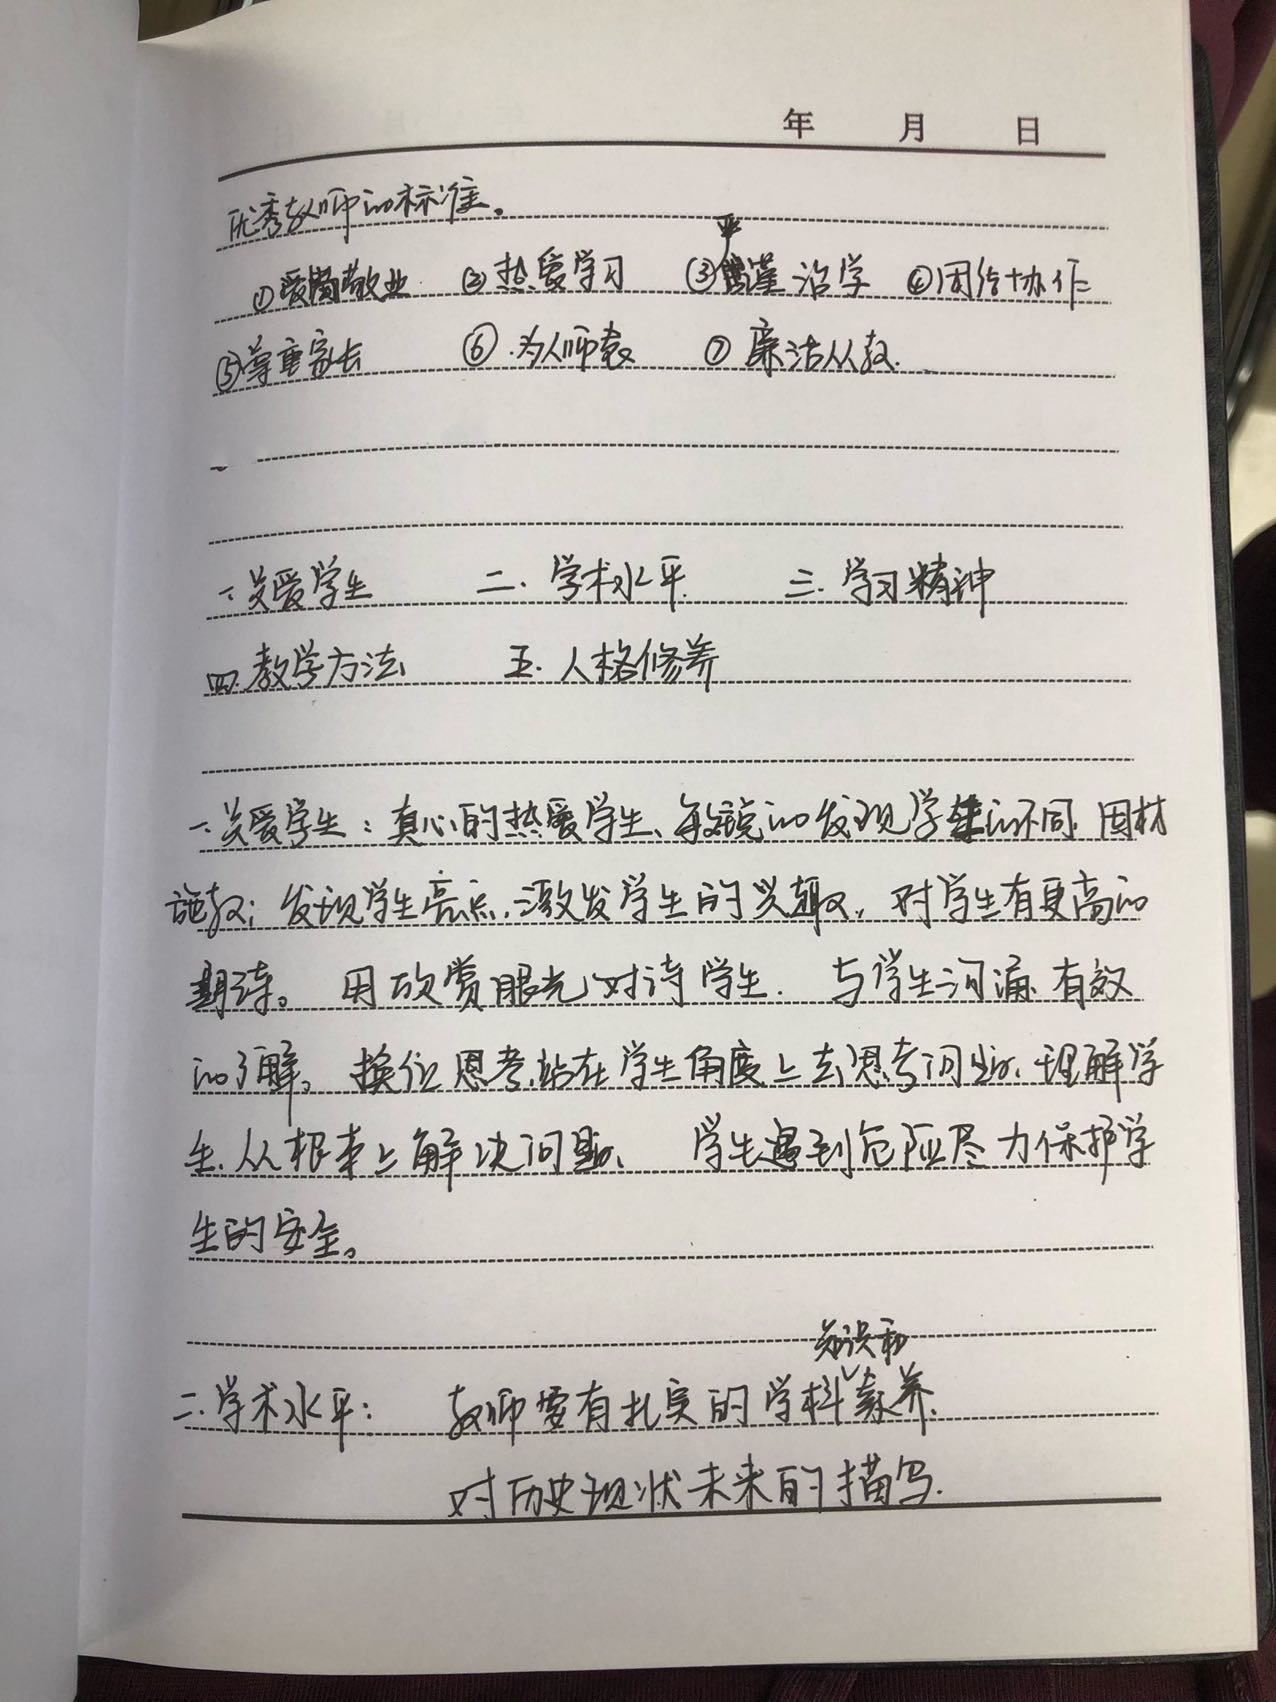 年 月 日
优秀教师的标准。
①爱岗敬业 ②热爱学习 ③严谨治学 ④团结协作
⑤尊重家长 ⑥为人师表 ⑦廉洁从教.
一、关爱学生 二.学术水平. 三.学习精神
四.教学方法 五.人格修养
一.关爱学生:真心的热爱学生、敏锐的发现学生的不同.因材
施教;发现学生亮点.激发学生的兴趣,对学生有更高的
期待。用欣赏眼光对待学生.与学生沟通.有效
的了解。换位思考.站在学生角度上去思考问题.理解学
生.从根本上解决问题、学生遇到危险尽力保护学
生的安全。
二.学术水平:教师要有扎实的学科知识和素养.
对历史现状未来的描写.